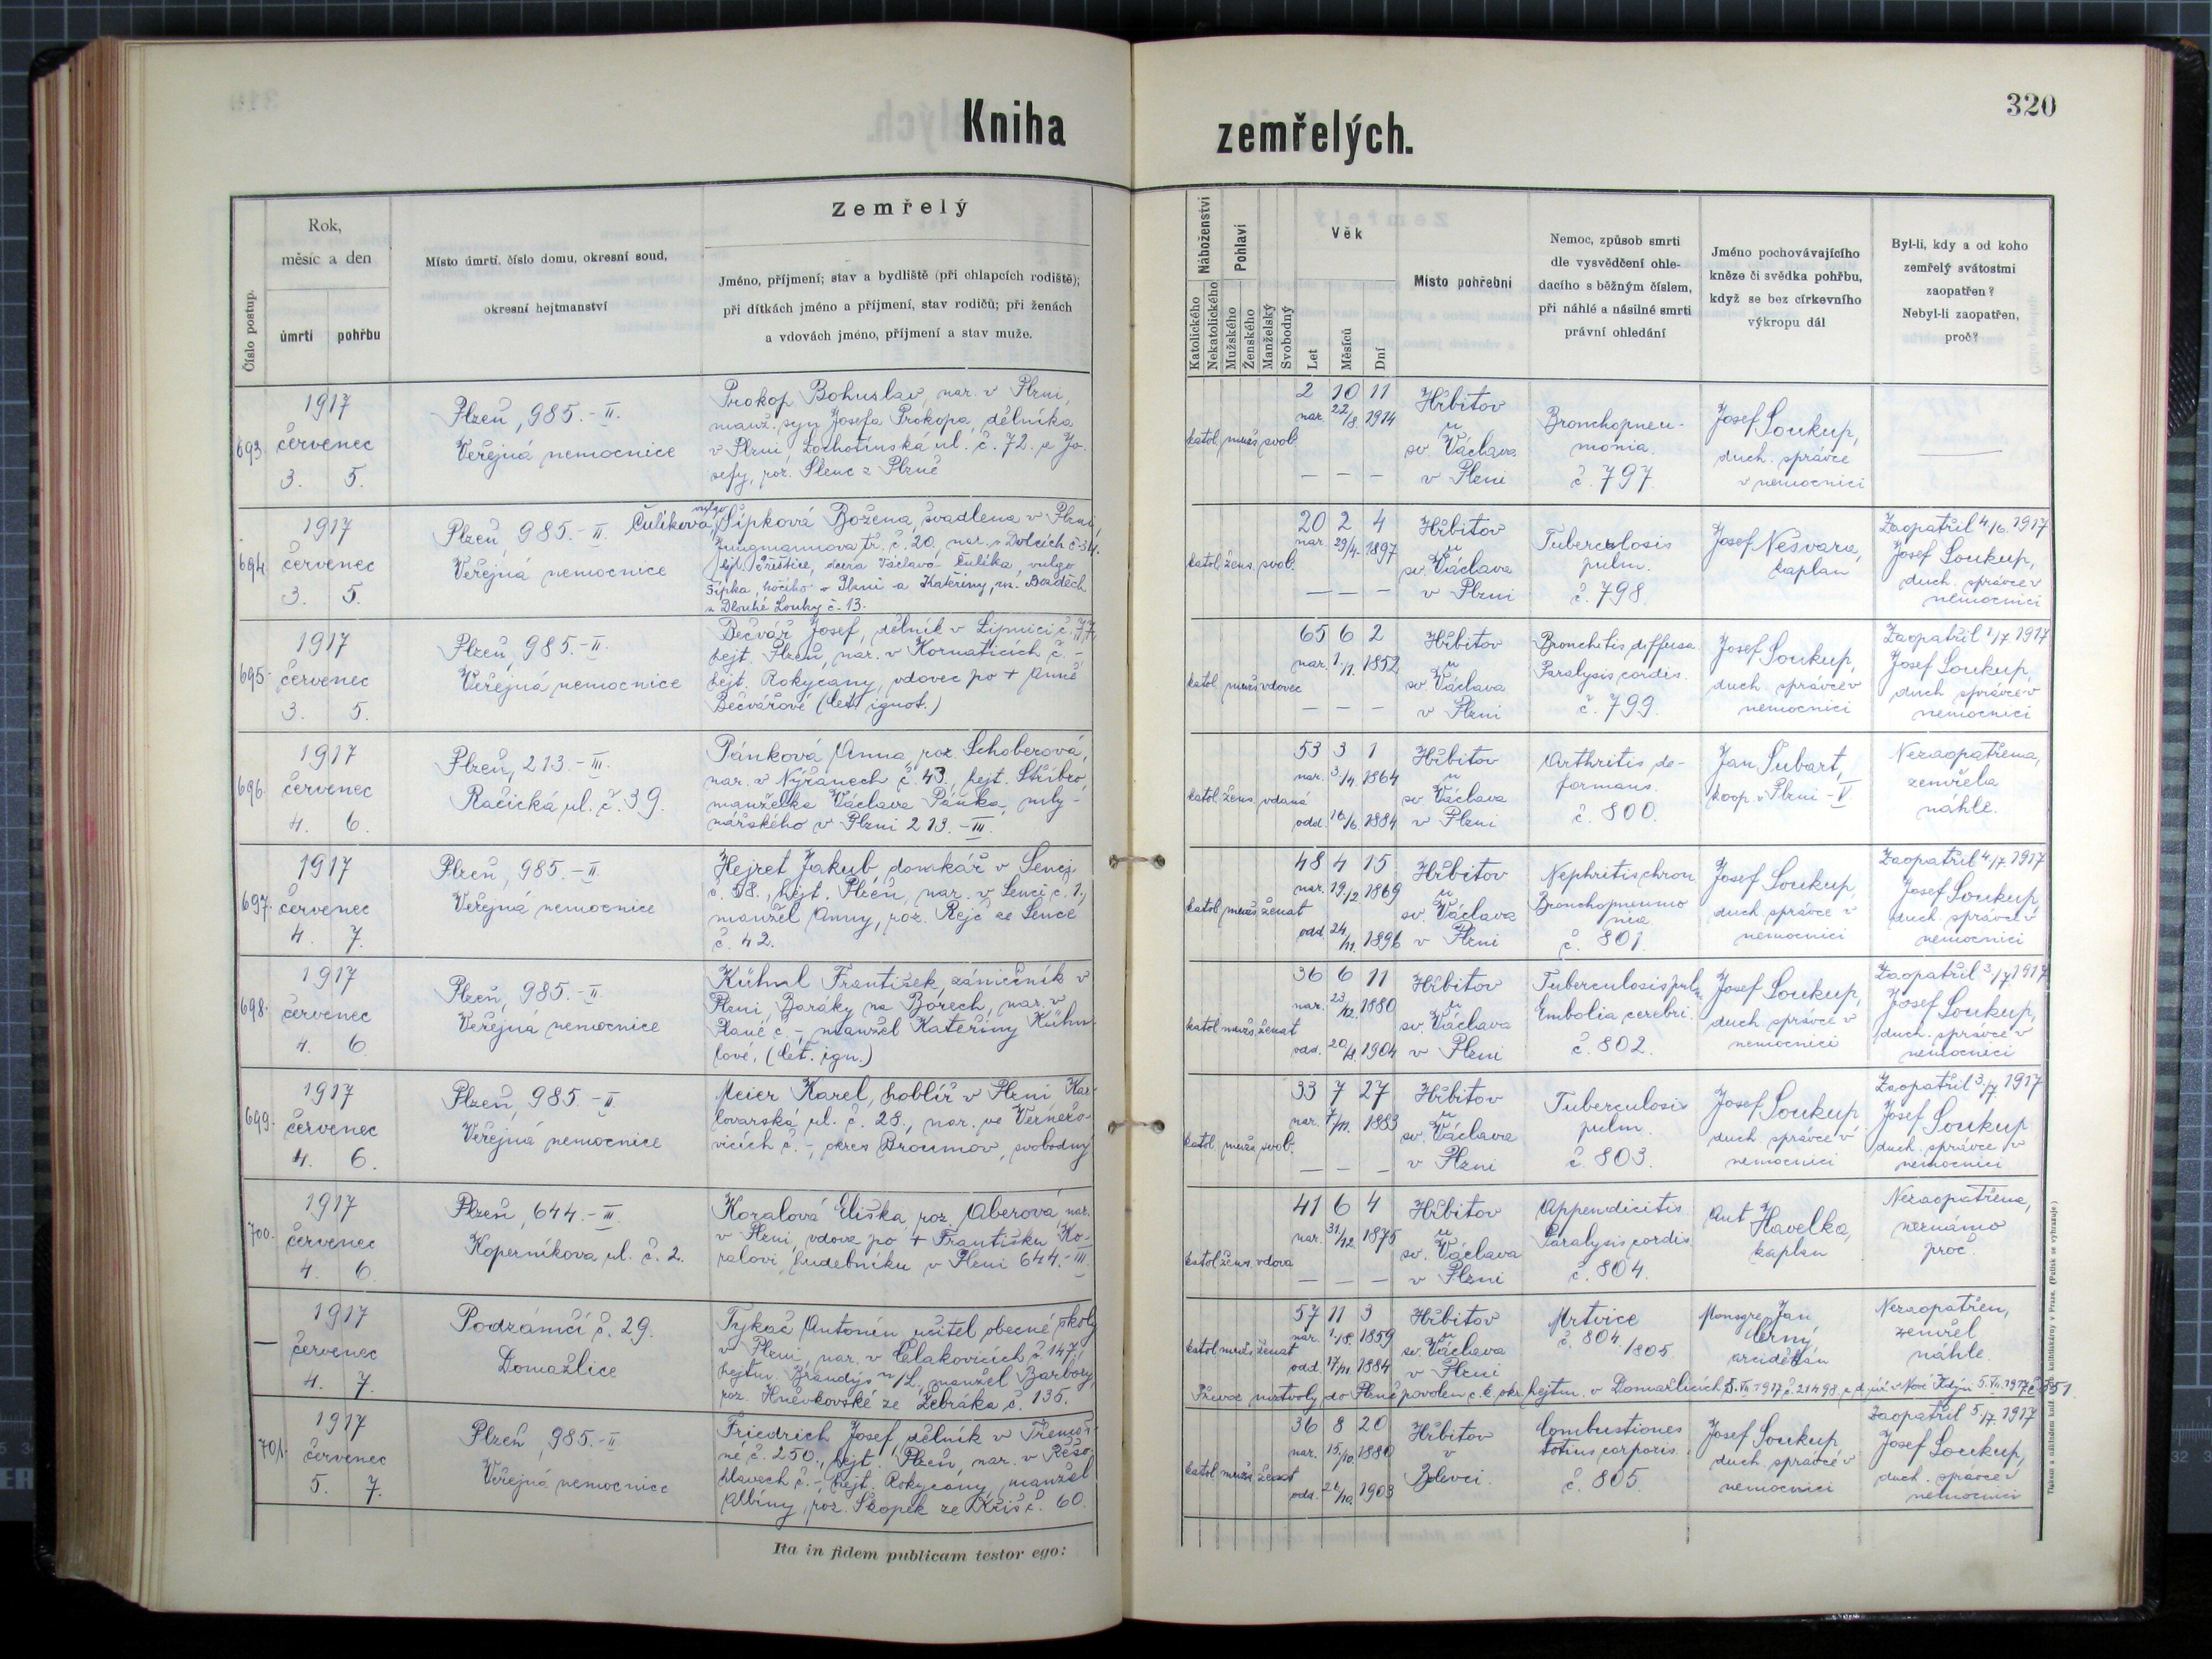 320
Kniha zemřelých.
Číslo postup.
Rok,
měsíc a den
úmrtí
pohřbu
Místo úmrtí, číslo domu, okresní soud,
okresní hejtmanství
Zemřelý
Jméno, příjmení; stav a bydliště (při chlapcích rodiště);
při dítkách jméno a příjmení, stav rodičů; při ženách
a vdovách jméno, příjmení a stav muže.
Náboženství
Katolického
Nekatolického
Pohlaví
Mužského
Ženského
Manželský
Svobodný
Věk
Let
Měsíců
Dní
Místo pohřební
Nemoc, způsob smrti
dle vysvědčení ohle-
dacího s běžným číslem,
při náhlé a násilné smrti
právní ohledání
Jméno pochovávajícího
kněze či svědka pohřbu,
když se bez církevního
výkropu dál
Byl-li, kdy a od koho
zemřelý svátostmi
zaopatřen?
Nebyl-li zaopatřen,
proč?
693.
1917
červenec
3. 5.
Plzeň, 985.-II.
Veřejná nemocnice
Prokop Bohuslav, nar. v Plzni,
manž. syn Josefa Prokopa, dělníka
v Plzni, Lochotínská ul. č. 72. a Jo-
sefy, roz. Slenc z Plzně
katol. muž. svob.
2 10 11
nar. 22/8. 1914
— — —
Hřbitov
u
sv. Václava
v Plzni
Bronchopneu-
monia.
č. 797.
Josef Soukup,
duch. správce
v nemocnici
—
694.
1917
červenec
3. 5.
Plzeň, 985.-II.
Veřejná nemocnice
Čulíková, vulgo Šípková Božena, švadlena v Plzni,
Jungmannova tř. č. 20., nar. v Dolcích č. 34.
hejt. Přeštice, dcera Václava Čulíka, vulgo
Šípka, kočího v Plzni a Kateřiny, roz. Baděch
z Dlouhé Louky č. 13.
katol. žens. svob.
20 2 4
nar. 29/4. 1897
— — —
Hřbitov
u
sv. Václava
v Plzni
Tuberculosis
pulm.
č. 798.
Josef Nešvara,
kaplan
Zaopatřil 4/6. 1917
Josef Soukup,
duch. správce v
nemocnici
695.
1917
červenec
3. 5.
Plzeň, 985.-II.
Veřejná nemocnice
Bečvář Josef, dělník v Lipnici č. 77,
hejt. Plzeň, nar. v Kornaticích č. -
hejt. Rokycany, vdovec po + Anně
Bečvářové (det. ignot.)
katol. muž. vdovec
65 6 2
nar. 1./1. 1852
— — —
Hřbitov
u
sv. Václava
v Plzni
Bronchitis diffusa
Paralysis cordis.
č. 799.
Josef Soukup,
duch. správce v
nemocnici
Zaopatřil 1/7. 1917
Josef Soukup,
duch. správce v
nemocnici
696.
1917
červenec
4. 6.
Plzeň, 213.-III.
Račická ul. č. 39.
Pánková Anna, roz. Schoberová,
nar. v Nýřanech č. 43., hejt. Stříbro,
manželka Václava Pánka, mly-
nářského v Plzni 213.-III.
katol. žens. vdaná
53 3 1
nar. 3/4. 1864
odd. 16/6. 1884
Hřbitov
u
sv. Václava
v Plzni
Arthritis de-
formans.
č. 800.
Jan Šubart,
koop. v Plzni-V
Nezaopatřena,
zemřela
náhle.
697.
1917
červenec
4. 7.
Plzeň, 985.-II.
Veřejná nemocnice
Hejret Jakub, domkář v Senci
č. 58., hejt. Plzeň, nar. v Senci č. 1.,
manžel Anny, roz. Rejč ze Sence
č. 42.
katol. muž. ženat
48 4 15
nar. 19/2. 1869
odd. 24/11. 1896
Hřbitov
u
sv. Václava
v Plzni
Nephritis chron.
Bronchopneumo
nia.
č. 801.
Josef Soukup,
duch. správce v
nemocnici
Zaopatřil 4/7. 1917
Josef Soukup,
duch. správce v
nemocnici
698.
1917
červenec
4. 6.
Plzeň, 985.-II.
Veřejná nemocnice
Kühnl František, zámečník v
Plzni, Baráky na Borech, nar. v
Plané č. -, manžel Kateřiny Kühn-
lové, (det. ign.)
katol. muž. ženat
36 6 11
nar. 23/12. 1880
odd. 1904
Hřbitov
u
sv. Václava
v Plzni
Tuberculosis pulm.
Embolia cerebri.
č. 802.
Josef Soukup,
duch. správce v
nemocnici
Zaopatřil 3/7 1917
Josef Soukup,
duch. správce v
nemocnici
699.
1917
červenec
4. 6.
Plzeň, 985.-II.
Veřejná nemocnice
Meier Karel, hoblíř v Plzni, Kar-
lovarská ul. č. 28., nar. ve Verneřo-
vicích č. -, okres Broumov, svobodný
katol. muž. svob.
33 7 27
nar. 7/11. 1883
— — —
Hřbitov
u
sv. Václava
v Plzni
Tuberculosis
pulm.
č. 803.
Josef Soukup
duch. správce v
nemocnici
Zaopatřil 3/7 1917
Josef Soukup
duch. správce v
nemocnici
700.
1917
červenec
4. 6.
Plzeň, 644.-III.
Koperníkova ul. č. 2.
Koralová Eliška, roz. Aberová, nar.
v Plzni, vdova po + Františku Ko-
ralovi, hudebníku v Plzni 644.-III.
katol. žens. vdova
41 6 4
nar. 31/12. 1875
— — —
Hřbitov
u
sv. Václava
v Plzni
Appendicitis
Paralysis cordis
č. 804.
Ant. Havelka,
kaplan
Nezaopatřena,
neznámo
proč.
—
1917
červenec
4. 7.
Podzámčí č. 29.
Domažlice
Tykač Antonín, učitel obecné školy
v Plzni, nar. v Čelakovicích č. 147,
hejtm. Brandýs n/L., manžel Barbory,
roz. Hněvkovské ze Žebráka č. 135.
katol. muž. ženat
57 11 3
nar. 1/8. 1859
odd. 17/11. 1884
Hřbitov
u
sv. Václava
v Plzni
Mrtvice
č. 804/1805.
Monsgre Jan
Černý,
arciděkan
Nezaopatřen,
zemřel
náhle
Převoz mrtvoly do Plzně povolen c. k. okr. hejtm. v Domažlicích 5. VII. 1917 č. 21498. a d. úř. v Nové Kdyni 5. VII. 1917 č. 851.
701.
1917
červenec
5. 7.
Plzeň, 985.-II
Veřejná nemocnice
Friedrich Josef, dělník v Třemoš-
né č. 250., hejt. Plzeň, nar. v Réšo-
hlavech č. -, hejt. Rokycany, manžel
Albíny, roz. Skopek ze Kříš č. 60.
katol. muž. ženat
36 8 20
nar. 15./10. 1880
odd. 1903
Hřbitov
v
Zdevci.
Combustiones
totius corporis.
č. 805.
Josef Soukup,
duch. správce v
nemocnici
Zaopatřil 5/7. 1917
Josef Soukup,
duch. správce v
nemocnici
Ita in fidem publicam testor ego: